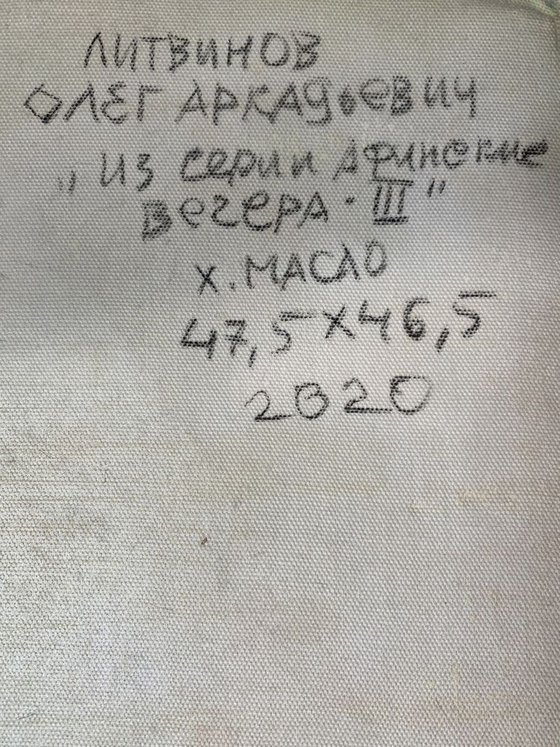 ЛИТВИНОВ
ОЛЕГ АРКАДЬЕВИЧ
„ИЗ СЕРИИ АФИНСКИЕ
ВЕЧЕРА · III"
Х. МАСЛО
47,5 Х 46,5
2020